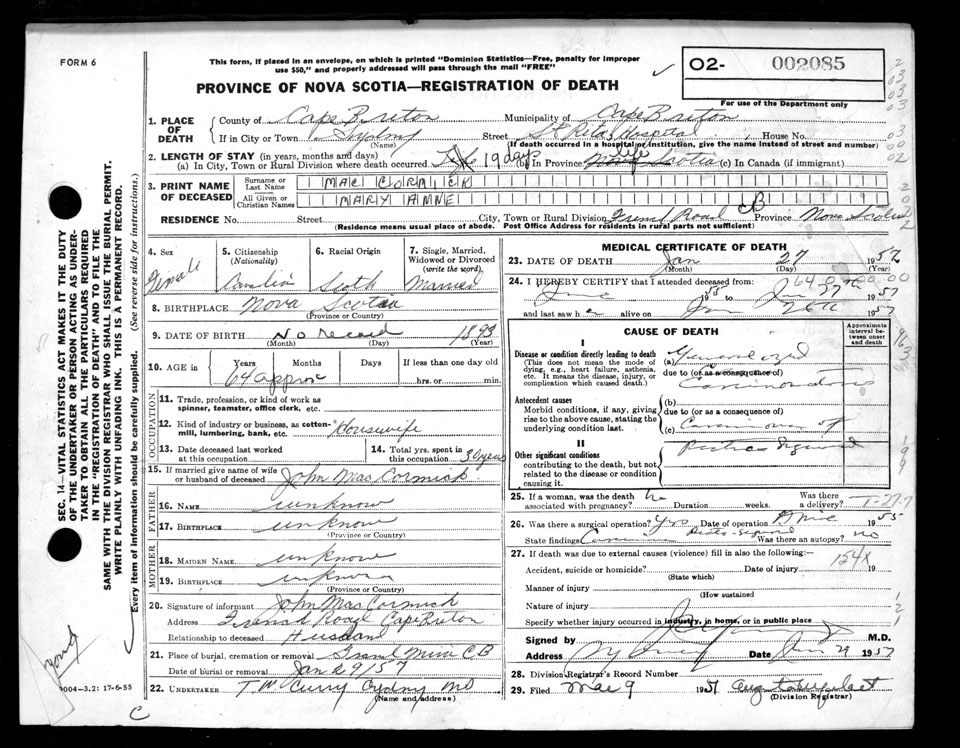 FORM 6
This form, if placed in an envelope, on which is printed "Dominion Statistics—Free, penalty for improper
use $50," and properly addressed will pass through the mail "FREE"
O2- 002085
PROVINCE OF NOVA SCOTIA—REGISTRATION OF DEATH
For use of the Department only
1. PLACE OF DEATH
County of Cape Breton Municipality of Cape Breton
If in City or Town Sydney Street St Rita Hospital House No.
(Name) (If death occurred in a hospital or institution, give the name instead of street and number)
2. LENGTH OF STAY (in years, months and days)
(a) In City, Town or Rural Division where death occurred 19 days (b) In Province life Nova Scotia (c) In Canada (if immigrant)
3. PRINT NAME OF DECEASED
Surname or Last Name MAC CORMICK
All Given or Christian Names MARY ANNE
RESIDENCE No. Street City, Town or Rural Division French Road CB Province Nova Scotia
(Residence means usual place of abode. Post Office Address for residents in rural parts not sufficient)
4. Sex Female
5. Citizenship (Nationality) Canadian
6. Racial Origin Scotch
7. Single, Married, Widowed or Divorced (write the word) Married
8. BIRTHPLACE Nova Scotia
(Province or Country)
9. DATE OF BIRTH No record 1893
(Month) (Day) (Year)
10. AGE in Years Months Days If less than one day old
64 approx hrs. or min.
OCCUPATION
11. Trade, profession, or kind of work as spinner, teamster, office clerk, etc.
12. Kind of industry or business, as cotton-mill, lumbering, bank, etc. Housewife
13. Date deceased last worked at this occupation
14. Total yrs. spent in this occupation 30 years
15. If married give name of wife or husband of deceased John MacCormick
FATHER
16. NAME unknow
17. BIRTHPLACE unknow
(Province or Country)
MOTHER
18. MAIDEN NAME unknow
19. BIRTHPLACE unknow
(Province or Country)
20. Signature of informant John MacCormick
Address French Road Cape Breton
Relationship to deceased Husband
21. Place of burial, cremation or removal Grand Mira CB
Date of burial or removal Jan 29/57
22. UNDERTAKER T W Curry Sydney NS
(Name and address)
MEDICAL CERTIFICATE OF DEATH
23. DATE OF DEATH Jan 27 1957
(Month) (Day) (Year)
24. I HEREBY CERTIFY that I attended deceased from:
June 1955 to Jan 27th 1957
and last saw her alive on Jan 26th 1957
CAUSE OF DEATH
Approximate interval between onset and death
I
Disease or condition directly leading to death
(This does not mean the mode of dying, e.g., heart failure, asthenia, etc. It means the disease, injury, or complication which caused death.)
(a) Generalized
due to (or as a consequence of)
Carcinomatosis
Antecedent causes
Morbid conditions, if any, giving rise to the above cause, stating the underlying condition last.
(b)
due to (or as a consequence of)
(c) Carcinoma of
II
Other significant conditions
contributing to the death, but not related to the disease or condition causing it.
25. If a woman, was the death associated with pregnancy? No Duration weeks. Was there a delivery?
26. Was there a surgical operation? Yes Date of operation 1955
State findings Carcinoma Recto-Sigmoid Was there an autopsy? no
27. If death was due to external causes (violence) fill in also the following:—
Accident, suicide or homicide? Date of injury 19
(State which)
154X
Manner of injury
(How sustained)
Nature of injury
Specify whether injury occurred in industry, in home, or in public place
Signed by M.D.
Address Sydney Date Jan 1957
28. Division Registrar's Record Number
29. Filed Mar 9 1957
(Division Registrar)
SEC. 14—VITAL STATISTICS ACT MAKES IT THE DUTY
OF THE UNDERTAKER OR PERSON ACTING AS UNDER-
TAKER TO OBTAIN ALL THE PARTICULARS REQUIRED
IN THE "REGISTRATION OF DEATH" AND TO FILE THE
SAME WITH THE DIVISION REGISTRAR WHO SHALL ISSUE THE BURIAL PERMIT.
WRITE PLAINLY WITH UNFADING INK. THIS IS A PERMANENT RECORD.
Every item of information should be carefully supplied. (See reverse side for instructions.)
9004-3.2: 17-6-55
C